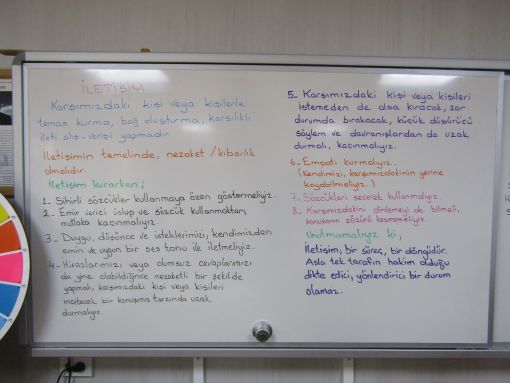 İLETİŞİM
Karşımızdaki kişi veya kişilerle
temas kurma, bağ oluşturma, karşılıklı
ileti alış-verişi yapmadır.
İletişimin temelinde, nezaket / kibarlık
olmalıdır.
İletişim kurarken;
1- Sihirli sözcükler kullanmaya özen göstermeliyiz.
2- Emir verici üslup ve sözcük kullanmaktan,
mutlaka kaçınmalıyız.
3- Duygu, düşünce ve isteklerimizi, kendimizden
emin ve uygun bir ses tonu ile iletmeliyiz.
4- Itirazlarımızı veya olumsuz cevaplarımızı
da yine olabildiğince nezaketli bir şekilde
yapmalı, karşımızdaki kişi veya kişileri
incitecek bir konuşma tarzından uzak
durmalıyız.
5- Karşımızdaki kişi veya kişileri
istemeden de olsa kıracak, zor
durumda bırakacak, küçük düşürücü
söylem ve davranışlardan da uzak
durmalı, kaçınmalıyız.
6- Empati kurmalıyız.
(Kendimizi, karşımızdakinin yerine
koyabilmeliyiz.)
7- Sözcükleri seçerek kullanmalıyız.
8- Karşımızdakini dinlemeyi de bilmeli,
konuşanın sözünü kesmemeliyiz.
Unutmamalıyız ki,
İletişim; bir süreç, bir döngüdür.
Asla tek tarafın hakim olduğu
dikte edici, yönlendirici bir durum
olamaz.